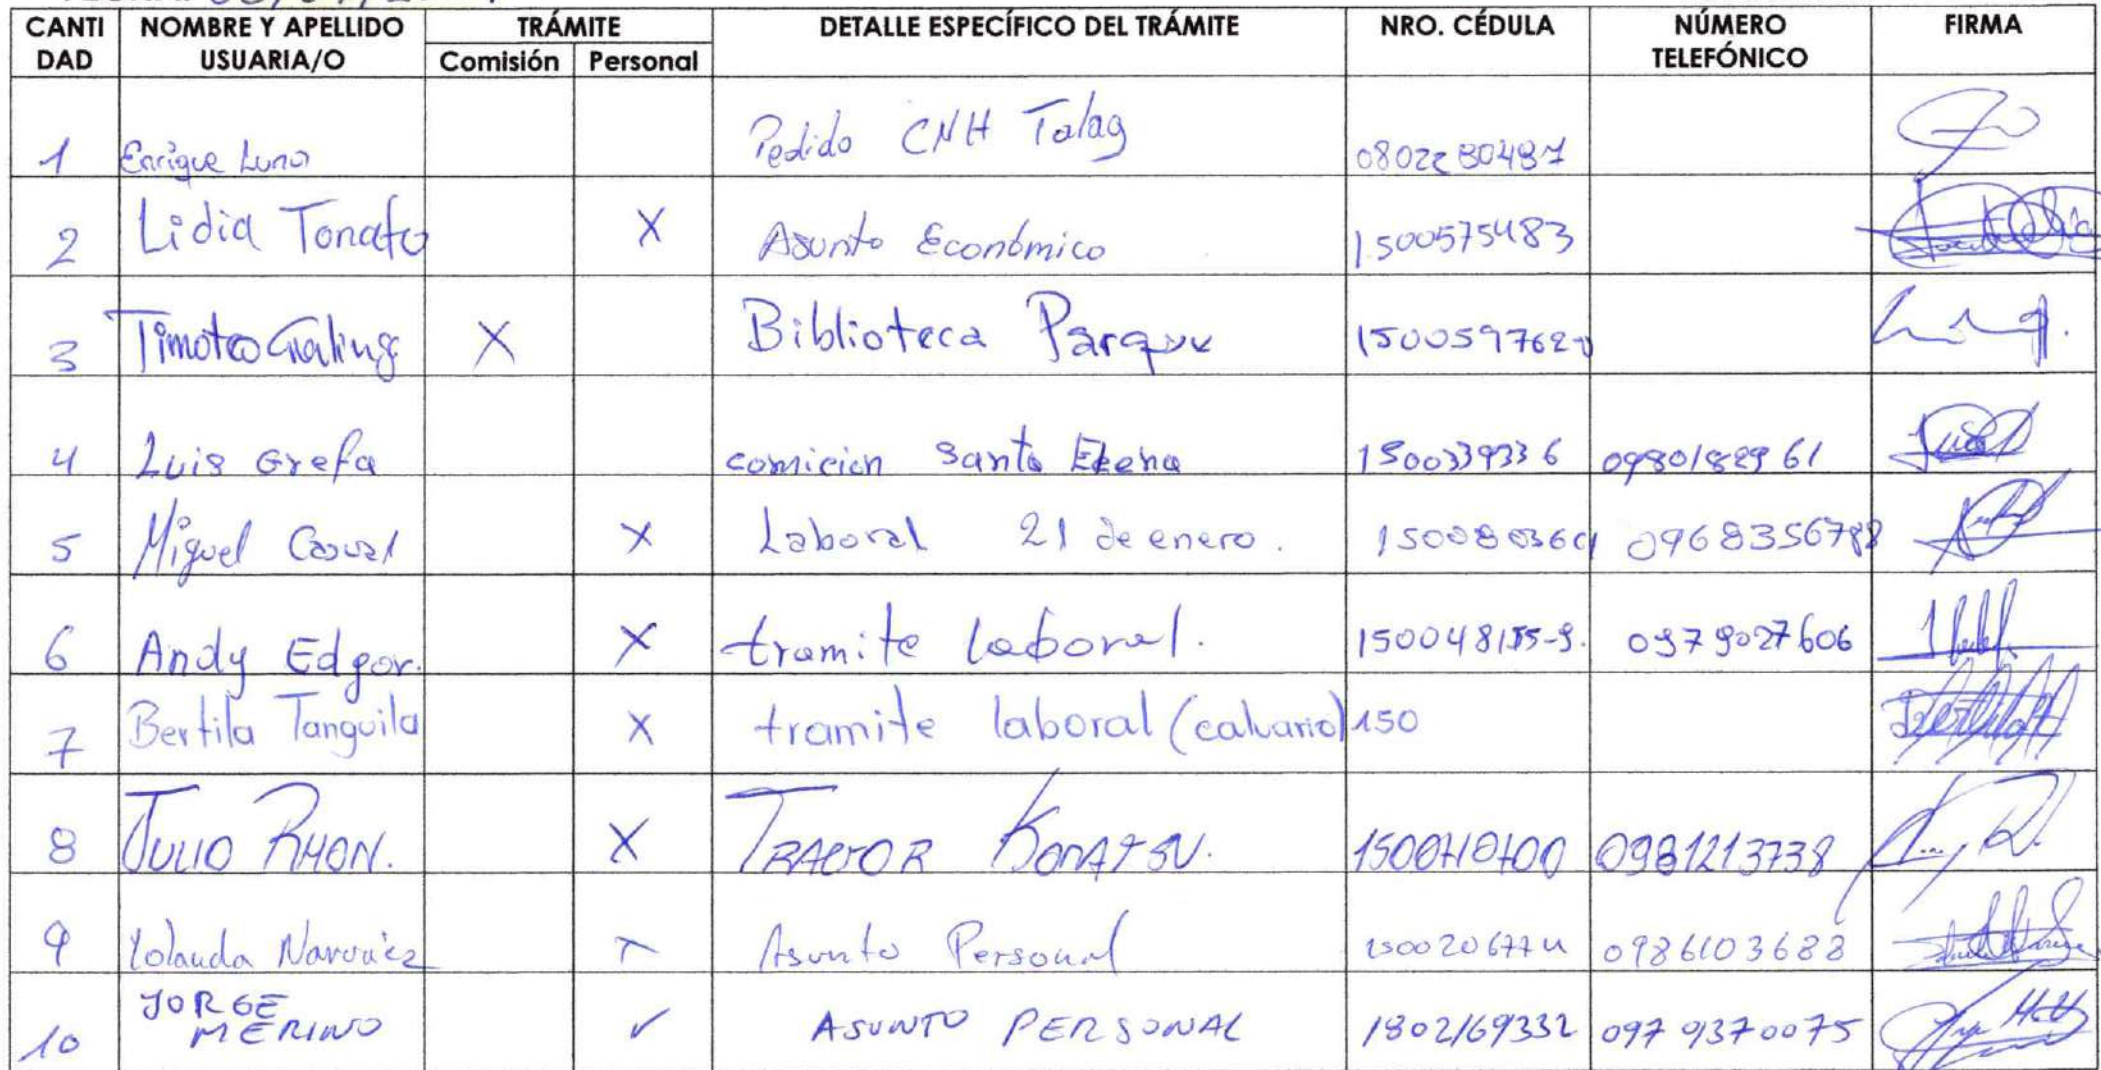 CANTIDAD NOMBRE Y APELLIDO USUARIA/O TRÁMITE Comisión Personal DETALLE ESPECÍFICO DEL TRÁMITE NRO. CÉDULA NÚMERO TELEFÓNICO FIRMA
1 Enrique Luna Pedido CNH Talag
2 Lidia Tonato X Asunto Económico 1500575483
3 Timoteo X Biblioteca Parque
4 Luis Grefa comicion Santa Elena 150033933 6
5 Miguel X Laboral 21 de enero. 0968356788
6 Andy Edgar. X tramite laboral. 150048155-9. 0979027606
7 Bertila Tanguila X tramite laboral (calvario) 150
8 JULIO RHON. X TRACTOR KOMATSU. 0981213738
9 Yolanda Narváez Asunto Personal 0986103688
10 JORGE MERINO ✓ ASUNTO PERSONAL 1802169332 097 9370075